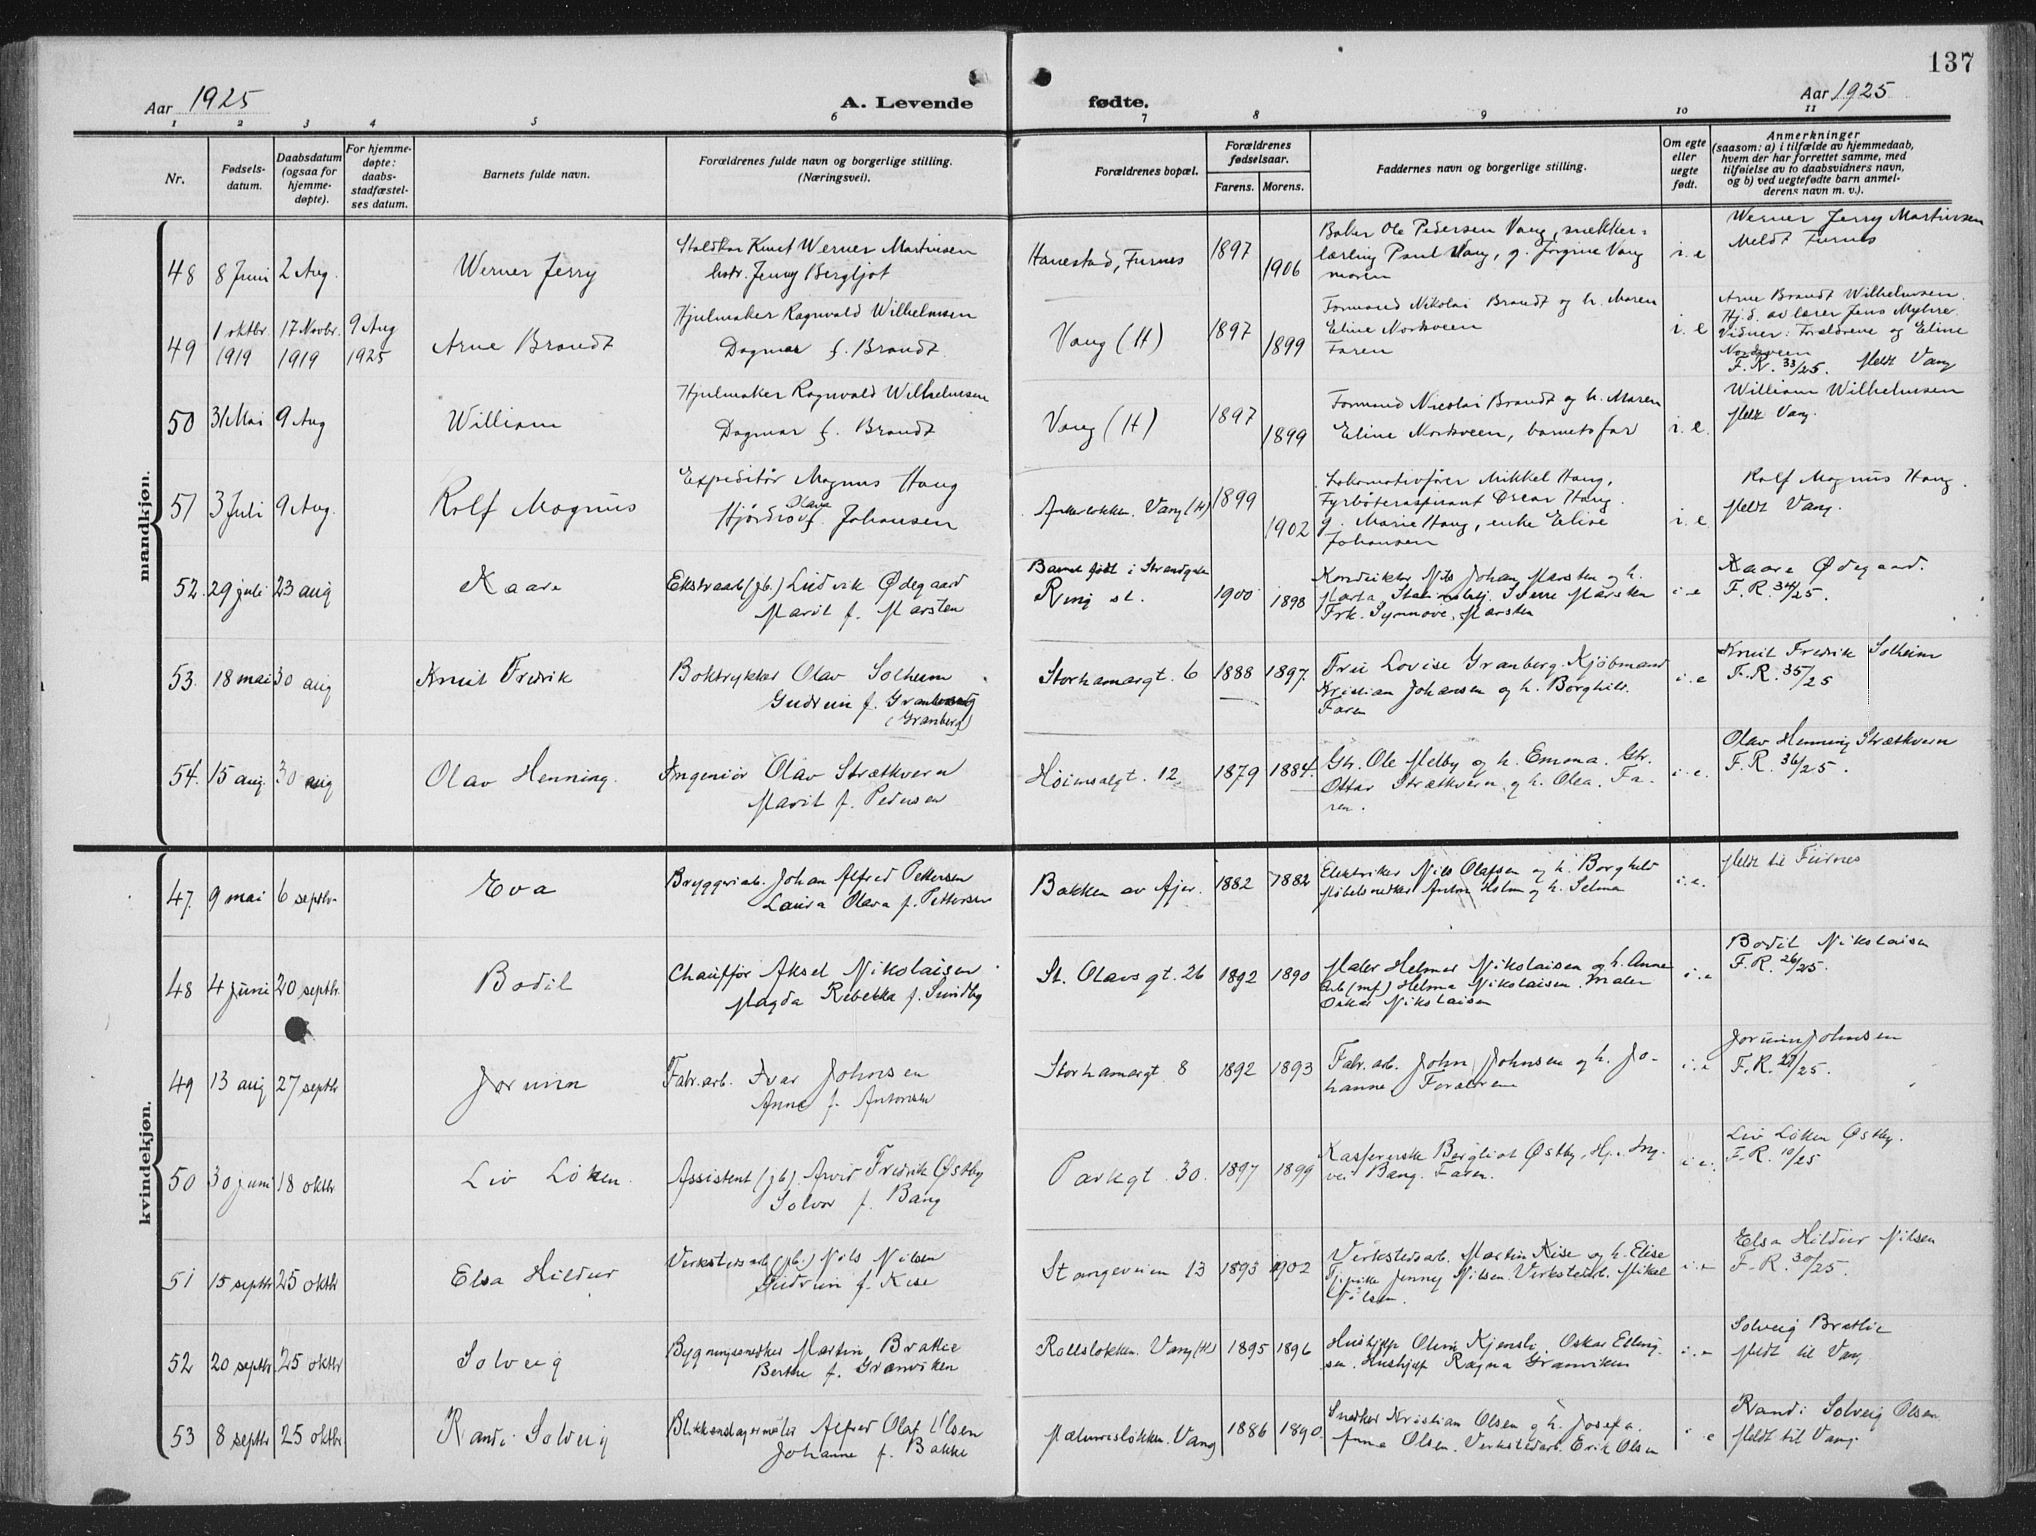 137
Aar 1925
A. Levende fødte.
Aar 1925
1 2 3 4 5 6 7 8 9 10 11
Nr.
Fødsels-
datum.
Daabsdatum
(ogsaa for
hjemme-
døpte).
For hjemme-
døpte:
daabs-
stadfæstel-
ses datum.
Barnets fulde navn.
Forældrenes fulde navn og borgerlige stilling.
(Næringsvei).
Forældrenes bopæl.
Forældrenes
fødselsaar.
Farens. Morens.
Faddernes navn og borgerlige stilling.
Om egte
eller
uegte
født.
Anmerkninger
(saasom: a) i tilfælde av hjemmedaab,
hvem der har forrettet samme, med
tilføielse av to daabsvidners navn,
og b) ved uegtefødte barn anmel-
derens navn m. v.).
mandkjøn.
48 8 Juni 2 Aug. Werner Jerry
Knut Werner Martinsen
Jenny Bergljot
Hanestad, Furnes 1897 1906
Baker Ole Pedersen Vang, snekker-
lærling Paul Vang, g. Jørgine Vang
moren
i. e
Werner Jerry Martinsen
Meldt Furnes
49 1 oktbr. 1919 17 Novbr. 1919 9 Aug 1925 Arne Brandt
Hjulmaker Ragnvald Wilhelmsen
Dagmar f. Brandt
Vang (H) 1897 1899
Formand Nikolai Brandt og h. Maren
Eline Norkveen
Faren
i. e
Arne Brandt Wilhelmsen.
Hj.d. av lærer Jens Myhre.
Vidner: Forældrene og Eline
F. R. 33/25. Meldt Vang
50 31 Mai 9 Aug William
Hjulmaker Ragnvald Wilhelmsen
Dagmar f. Brandt
Vang (H) 1897 1899
Formand Nicolai Brandt og h. Maren
Eline Norkveen, barnets far
i. e.
William Wilhelmsen
Meldt Vang.
51 3 Juli 9 Aug. Rolf Magnus
Expeditør Magnus Haug
Olava
Hjørdis f. Johansen
Ankerløkken. Vang (H) 1899 1902
Lokomotivfører Mikkel Haug,
Fyrbøteraspirant Oscar Haug.
g. Marie Haug, enke Elise
Johansen
i. e
Rolf Magnus Haug.
Meldt Vang.
52. 29 juli 23 aug Kaare
Ekstraarb (jb.) Ludvik Ødegaard
Marit f. Marsten
Barnet født i Strandgata
Ring st. 1900 1898
Konduktør Nils Johan Marsten og h.
Marta Sverre Marsten
Frk. Synnøve Marsten
i. e
Kaare Ødegaard.
F. R. 34/25.
53. 18 mai 30 aug Knut Fredrik
Boktrykker Olav Solheim
Gudrun f.
(Granberg)
Storhamargt. 6 1888 1897.
Fru Lovise Granberg. Kjøbmand
Kristian Johansen og h. Borghild.
Faren
i. e
Knut Fredrik Solheim
F. R. 35/25
54. 15 aug. 30 aug Olav Henning.
Ingeniør Olav Strætkvern
Marit f. Pedersen
Høiensalgt. 12. 1879 1884.
Gbr. Ole Melby og h. Emma. Gbr.
Ottar Strætkvern og h. Olea. Fa-
ren.
i. e.
Olav Henning Strætkvern
F. R. 36/25.
kvindekjøn.
47. 9 mai 6 septbr Eva
Bryggeriarb. Johan Alfred Pettersen
Laura Olava f. Pettersen
Bakken av Ajer. 1882 1882
Elektriker Nils Olafsen og h. Borghild
Møbelsnedker Anton Holm og h. Selma
i. e.
Meldt til Furnes
48 4 juni 20 septbr. Bodil
Chauffør Aksel Nikolaisen
Magda Rebekka f. Sundby
St. Olavs gt. 26 1892 1890
Maler Helmer Nikolaisen og h. Anne
Arb (mf) Helma Nikolaisen. Maler
Oskar Nikolaisen
i. e
Bodil Nikolaisen
F. R. 26/25.
49 13 aug 27 septbr Jorunn
Fabr. arb. Ivar Johnsen
Anna f. Antonsen
Storhamargt. 8 1892 1893
Fabr. arb. John Johnsen og h. Jo-
hanne Forældrene
i. e
Jorunn Johnsen
F. R. 27/25.
50 30 juni 18 oktbr Liv Løken.
Assistent (jb). Arvid Fredrik Østby
Solvor f. Bang
Parkgt. 30. 1897 1899
Kassererske Bergliot Østby, Hj. Ing-
vei Bang. Faren.
i. e.
Liv Løken Østby.
F. R. 10/25
51 15 septbr 25 oktbr Elsa Hildur
Verkstedsarb (jb.) Nils Nilsen
Gudrun f. Kise
Stangeveien 13 1893 1902
Verkstedsarb. Martin Kise og h. Elise
Tj. pike Jenny Nilsen. Verkstedarb. Mikal
Nilsen.
i. e
Elsa Hildur Nilsen
F. R. 30/25.
52 20 septbr. 25 oktbr Solveig
Bygningssnedker Martin Bratlie
Berthe f. Grænviken
Rollsløkken. Vang (H) 1895 1896
Hushjelp Oline Kjensli. Oskar Elling-
sen. Hushjelp Ragna Granviken
i. e
Solveig Bratlie
Meldt til Vang
53 8 septbr 25 oktbr Randi Solveig
Blikkenslagermester Alfred Olaf Olsen
Johanne f. Bakke
Vang 1886 1890.
Snedker Kristian Olsen og h. Josefa.
Anna Olsen. Verkstedarb. Erik Olsen
i. e
Randi Solveig Olsen.
Meldt til Vang.